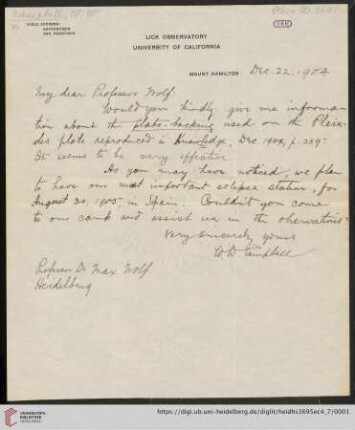 Campbell, W. W.
CABLE ADDRESS:
ASTRONOMER
SAN FRANCISCO
LICK OBSERVATORY
UNIVERSITY OF CALIFORNIA
MOUNT HAMILTON Dec 22, 1904
My dear Professor Wolf:
Would you kindly give me informa-
tion about the plate-backing used on the Pleia-
des plate reproduced in Knowledge, Dec. 1904, p. 289?
It seems to be very effective.
As you may have noticed, we plan
to have our most important eclipse station, for
August 30, 1905, in Spain. Couldn't you come
to our camp and assist us in the observations?
Very sincerely yours
W. W. Campbell
Professor Dr Max Wolf
Heidelberg
UNIVERSITÄTS-
BIBLIOTHEK
HEIDELBERG
https://digi.ub.uni-heidelberg.de/diglit/heidhs3695ec4_7/0001